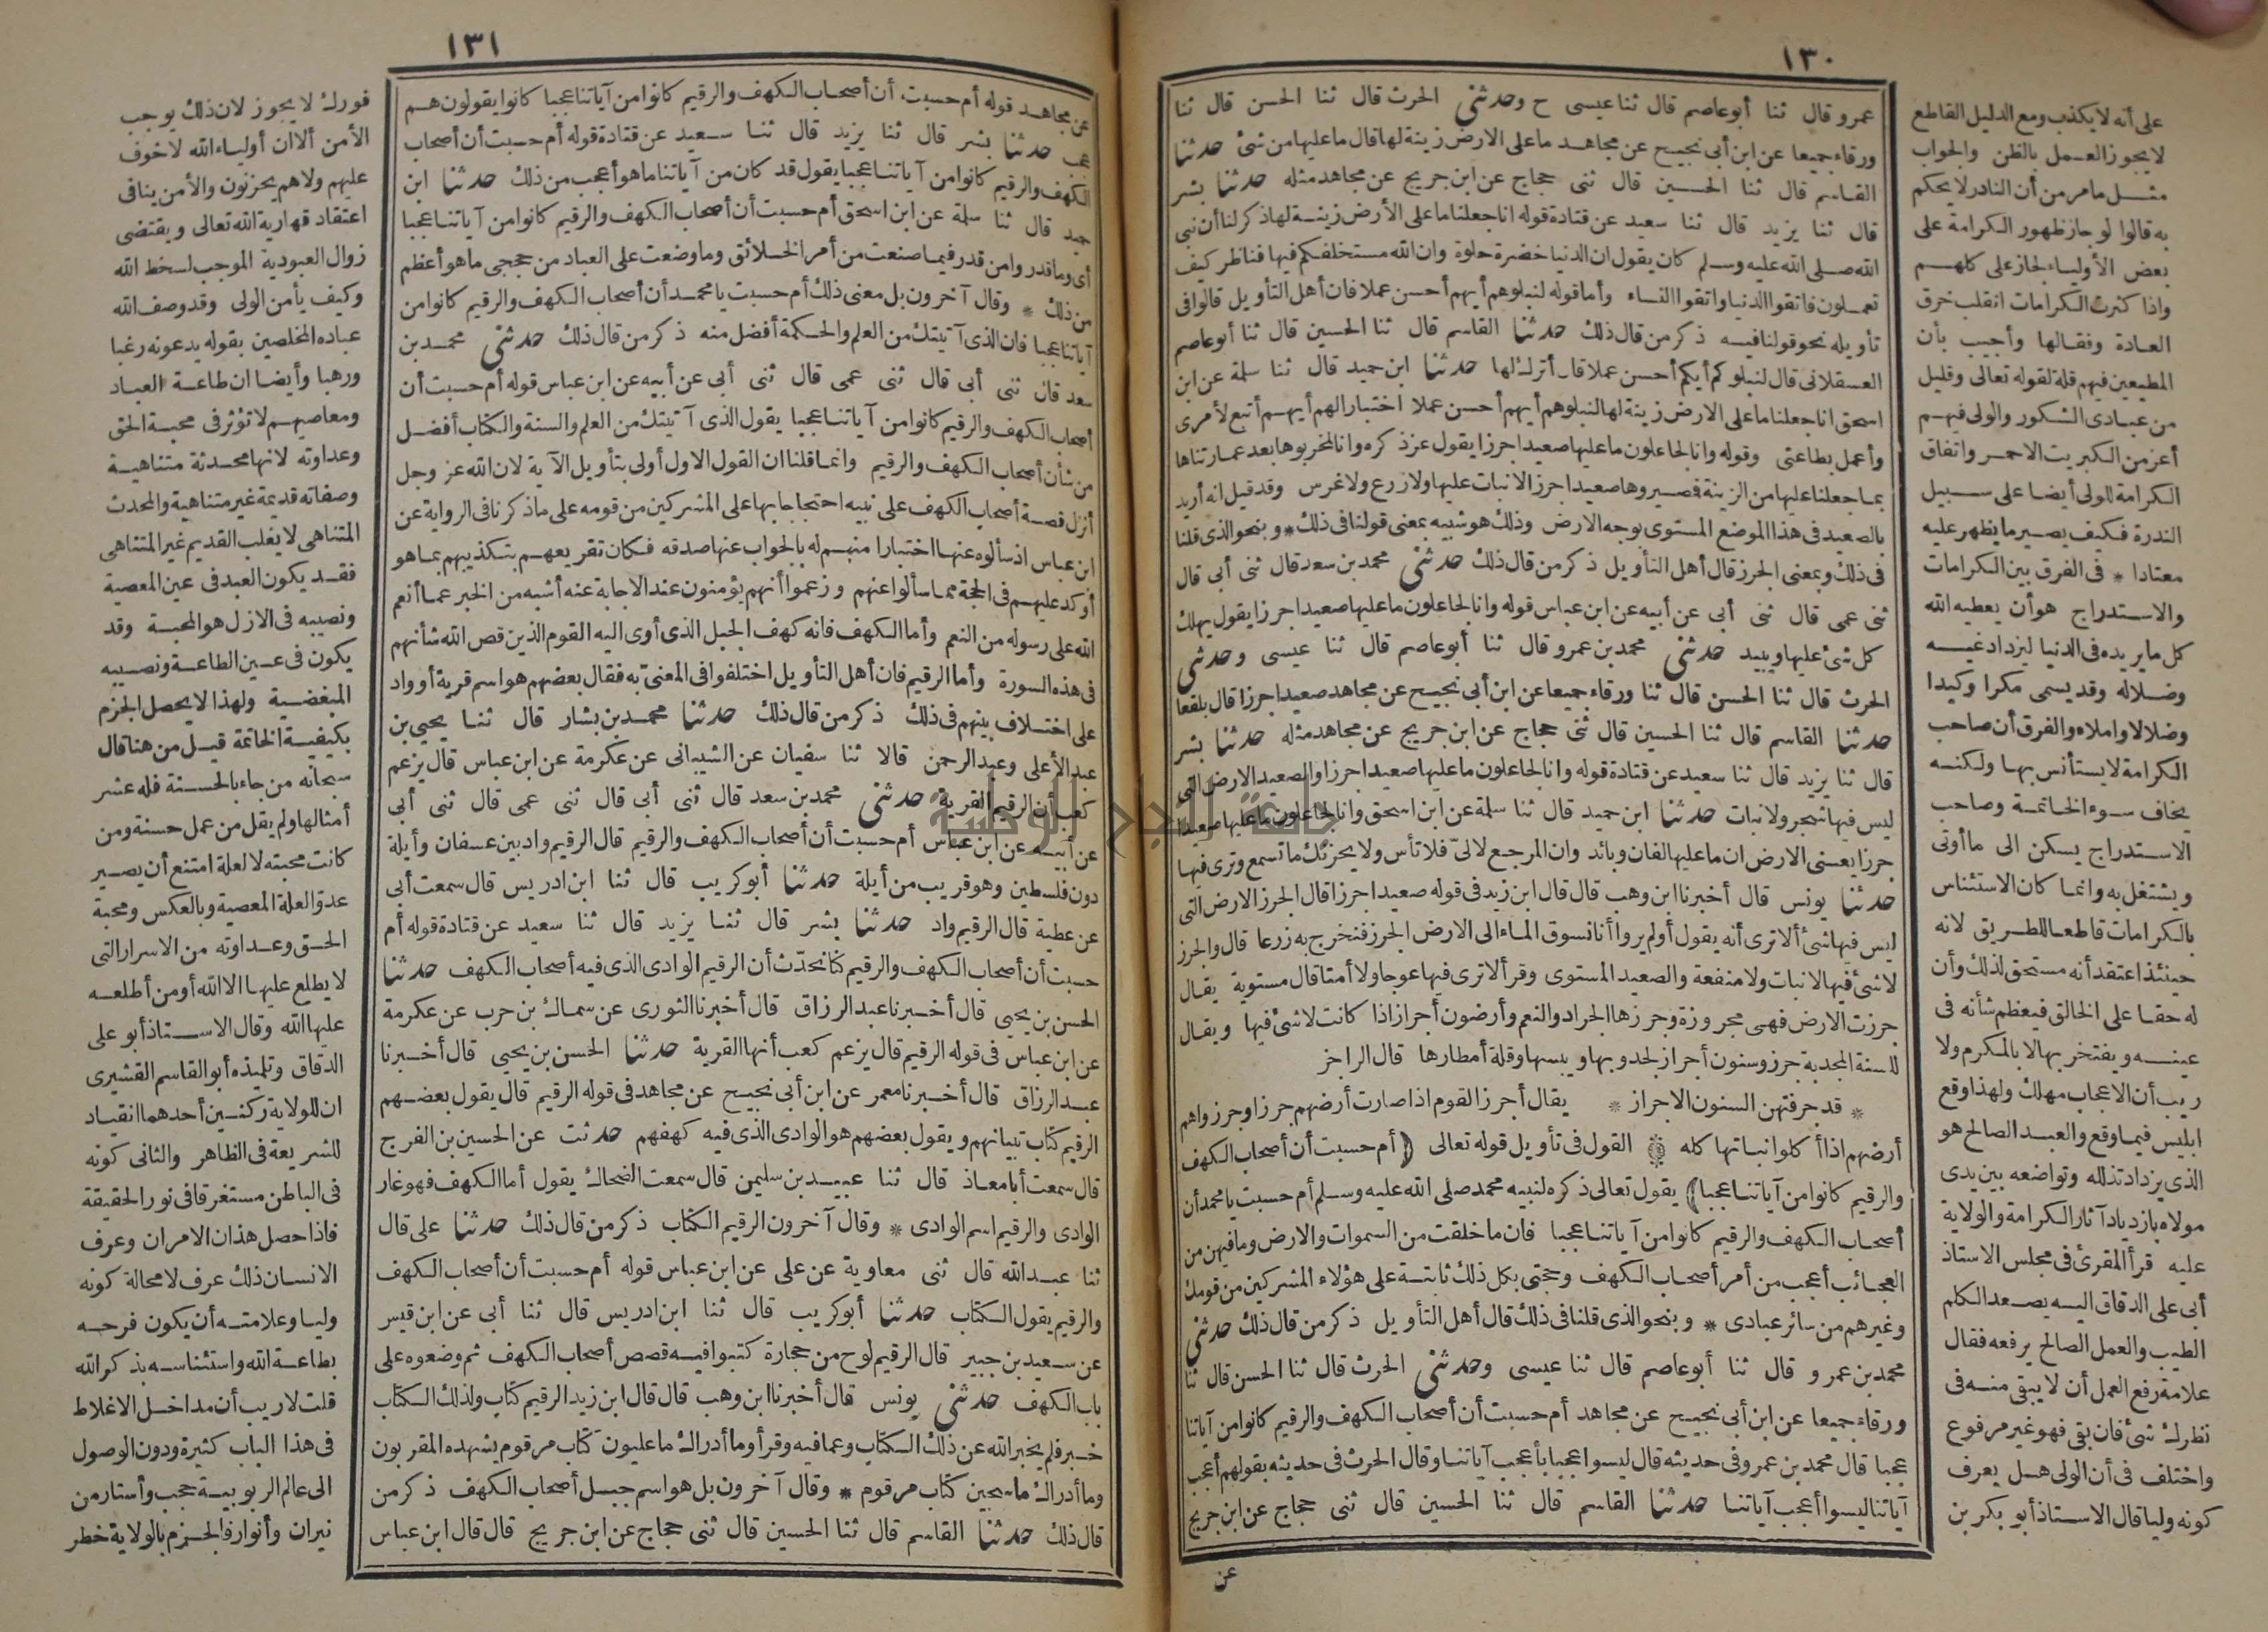 ١٣٠
عمرو قال ثنا أبو عاصم قال ثنا عيسى ح وحدثني الحرث قال ثنا الحسن قال ثنا
ورقاء جميعا عن ابن أبي نجيح عن مجاهد ما على الارض زينة لها قال ما عليها من شئ حدثنا
القاسم قال ثنا الحسين قال ثنى حجاج عن ابن جريج عن مجاهد مثله حدثنا بشر
قال ثنا يزيد قال ثنا سعيد عن قتادة قوله انا جعلنا ما على الأرض زينة لها ذكر لنا أن نبي
الله صلى الله عليه وسلم كان يقول ان الدنيا خضرة حلوة وان الله مستخلفكم فيها فناظر كيف
تعملون فاتقوا الدنيا واتقوا النساء وأما قوله لنبلوهم أيهم أحسن عملا فان أهل التأويل قالوا في
تأويله نحو قولنا فيه ذكر من قال ذلك حدثنا القاسم قال ثنا الحسين قال ثنا أبو عاصم
العسقلانى قال لنبلوكم أيكم أحسن عملا قال أترك لها حدثنا ابن حميد قال ثنا سلمة عن ابن
اسحق انا جعلنا ما على الارض زينة لها لنبلوهم أيهم أحسن عملا اختبارا لهم أيهم أتبع لأمرى
وأعمل بطاعتى وقوله وانا لجاعلون ما عليها صعيدا جرزا يقول عز ذكره وانا لمخربوها بعد عمارتناها
بما جعلنا عليها من الزينة فصيروها صعيدا جرزا لا نبات عليها ولا زرع ولا غرس وقد قيل انه أريد
بالصعيد في هذا الموضع المستوى بوجه الارض وذلك هو شبيه بمعنى قولنا في ذلك * وبنحو الذى قلنا
في ذلك وبمعنى الجرز قال أهل التأويل ذكر من قال ذلك حدثني محمد بن سعد قال ثنى أبي قال
ثنى عمى قال ثنى أبي عن أبيه عن ابن عباس قوله وانا لجاعلون ما عليها صعيدا جرزا يقول يهلك
كل شئ عليها ويبيد حدثني محمد بن عمرو قال ثنا أبو عاصم قال ثنا عيسى وحدثني
الحرث قال ثنا الحسن قال ثنا ورقاء جميعا عن ابن أبي نجيح عن مجاهد صعيدا جرزا قال بلقعا
حدثنا القاسم قال ثنا الحسين قال ثنى حجاج عن ابن جريج عن مجاهد مثله حدثنا بشر
قال ثنا يزيد قال ثنا سعيد عن قتادة قوله وانا لجاعلون ما عليها صعيدا جرزا والصعيد الارض التي
ليس فيها شجر ولا نبات حدثنا ابن حميد قال ثنا سلمة عن ابن اسحق وانا لجاعلون ما عليها صعيدا
جرزا يعنى الارض ان ما عليها لفان وبائد وان المرجع لالىّ فلا تأس ولا يحزنك ما تسمع وترى فيها
حدثنا يونس قال أخبرنا ابن وهب قال قال ابن زيد في قوله صعيدا جرزا قال الجرز الارض التي
ليس فيها شئ ألا ترى أنه يقول أولم يروا أنا نسوق الماء الى الارض الجرز فنخرج به زرعا قال والجرز
لا شئ فيها لا نبات ولا منفعة والصعيد المستوى وقرأ لا ترى فيها عوجا ولا أمتا قال مستوية يقال
جرزت الارض فهى مجروزة وجرزها الجراد والنعم وأرضون أجراز اذا كانت لا شئ فيها ويقال
للسنة المجدبة جرز وسنون أجراز لجدوبها ويبسها وقلة أمطارها قال الراجز
* قد جرفتهن السنون الاجراز * يقال أجرز القوم اذا صارت أرضهم جرزا وجرزوا هم
أرضهم اذا أكلوا نباتها كله القول في تأويل قوله تعالى (أم حسبت أن أصحاب الكهف
والرقيم كانوا من آياتنا عجبا) يقول تعالى ذكره لنبيه محمد صلى الله عليه وسلم أم حسبت يا محمد أن
أصحاب الكهف والرقيم كانوا من آياتنا عجبا فان ما خلقت من السموات والارض وما فيهن من
العجائب أعجب من أمر أصحاب الكهف وحجتى بكل ذلك ثابتة على هؤلاء المشركين من قومك
وغيرهم من سائر عبادى * وبنحو الذى قلنا في ذلك قال أهل التأويل ذكر من قال ذلك حدثني
محمد بن عمرو قال ثنا أبو عاصم قال ثنا عيسى وحدثني الحرث قال ثنا الحسن قال ثنا
ورقاء جميعا عن ابن أبي نجيح عن مجاهد أم حسبت أن أصحاب الكهف والرقيم كانوا من آياتنا
عجبا قال محمد بن عمرو في حديثه قال ليسوا عجبا بأعجب آياتنا وقال الحرث في حديثه بقولهم أعجب
آياتنا ليسوا أعجب آياتنا حدثنا القاسم قال ثنا الحسين قال ثنى حجاج عن ابن جريج
عن
على أنه لا يكذب ومع الدليل القاطع
لا يجوز العمل بالظن والجواب
مثل ما مر من أن النادر لا يحكم
به قالوا لو جاز ظهور الكرامة على
بعض الأولياء لجاز على كلهم
واذا كثرت الكرامات انقلب خرق
العادة وفقالها وأجيب بأن
المطيعين فيهم قلة لقوله تعالى وقليل
من عبادى الشكور والولى فيهم
أعز من الكبريت الاحمر واتفاق
الكرامة للولى أيضا على سبيل
الندرة فكيف يصير ما يظهر عليه
معتادا * في الفرق بين الكرامات
والاستدراج هو أن يعطيه الله
كل ما يريده في الدنيا ليزداد غيه
وضلاله وقد يسمى مكرا وكيدا
وضلالا واملاء والفرق أن صاحب
الكرامة لا يستأنس بها ولكنه
يخاف سوء الخاتمة وصاحب
الاستدراج يسكن الى ما أوتى
ويشتغل به وانما كان الاستئناس
بالكرامات قاطعا للطريق لانه
حينئذ اعتقد أنه مستحق لذلك وأن
له حقا على الخالق فيعظم شأنه في
عينه ويفتخر بها لا بالمكرم ولا
ريب أن الاعجاب مهلك ولهذا وقع
ابليس فيما وقع والعبد الصالح هو
الذى يزداد تذلله وتواضعه بين يدى
مولاه بازدياد آثار الكرامة والولاية
عليه قرأ المقرئ في مجلس الاستاذ
أبي على الدقاق اليه يصعد الكلم
الطيب والعمل الصالح يرفعه فقال
علامة رفع العمل أن لا يبقى منه في
نظرك شئ فان بقى فهو غير مرفوع
واختلف في أن الولى هل يعرف
كونه وليا قال الاستاذ أبو بكر بن
١٣١
عن مجاهد قوله أم حسبت أن أصحاب الكهف والرقيم كانوا من آياتنا عجبا كانوا يقولون هم
عجب حدثنا بشر قال ثنا يزيد قال ثنا سعيد عن قتادة قوله أم حسبت أن أصحاب
الكهف والرقيم كانوا من آياتنا عجبا يقول قد كان من آياتنا ما هو أعجب من ذلك حدثنا ابن
حميد قال ثنا سلمة عن ابن اسحق أم حسبت أن أصحاب الكهف والرقيم كانوا من آياتنا عجبا
أى وما قدروا من قدر فيما صنعت من أمر الخلائق وما وضعت على العباد من حججى ما هو أعظم
من ذلك * وقال آخرون بل معنى ذلك أم حسبت يا محمد أن أصحاب الكهف والرقيم كانوا من
آياتنا عجبا فان الذى آتيتك من العلم والحكمة أفضل منه ذكر من قال ذلك حدثني محمد بن
سعد قال ثنى أبي قال ثنى عمى قال ثنى أبي عن أبيه عن ابن عباس قوله أم حسبت أن
أصحاب الكهف والرقيم كانوا من آياتنا عجبا يقول الذى آتيتك من العلم والسنة والكتاب أفضل
من شأن أصحاب الكهف والرقيم وانما قلنا ان القول الاول أولى بتأويل الآية لان الله عز وجل
أنزل قصة أصحاب الكهف على نبيه احتجاجا بها على المشركين من قومه على ما ذكرنا في الرواية عن
ابن عباس اذ سألوه عنها اختبارا منهم له بالجواب عنها صدقه فكان تقريعهم بتكذيبهم بما هو
أوكد عليهم في الحجة مما سألوا عنهم وزعموا أنهم يؤمنون عند الاجابة عنه أشبه من الخبر عما أنعم
الله على رسوله من النعم وأما الكهف فانه كهف الجبل الذى أوى اليه القوم الذين قص الله شأنهم
في هذه السورة وأما الرقيم فان أهل التأويل اختلفوا في المعنىّ به فقال بعضهم هو اسم قرية أو واد
على اختلاف بينهم في ذلك ذكر من قال ذلك حدثنا محمد بن بشار قال ثنا يحيى بن
عبد الأعلى وعبد الرحمن قالا ثنا سفيان عن الشيبانى عن عكرمة عن ابن عباس قال يزعم
كعب أن الرقيم القرية حدثني محمد بن سعد قال ثنى أبي قال ثنى عمى قال ثنى أبي
عن أبيه عن ابن عباس أم حسبت أن أصحاب الكهف والرقيم قال الرقيم واد بين عسفان وأيلة
دون فلسطين وهو قريب من أيلة حدثنا أبو كريب قال ثنا ابن ادريس قال سمعت أبى
عن عطية قال الرقيم واد حدثنا بشر قال ثنا يزيد قال ثنا سعيد عن قتادة قوله أم
حسبت أن أصحاب الكهف والرقيم كنا نحدّث أن الرقيم الوادى الذى فيه أصحاب الكهف حدثنا
الحسن بن يحيى قال أخبرنا عبد الرزاق قال أخبرنا الثورى عن سماك بن حرب عن عكرمة
عن ابن عباس في قوله الرقيم قال يزعم كعب أنها القرية حدثنا الحسن بن يحيى قال أخبرنا
عبد الرزاق قال أخبرنا معمر عن ابن أبي نجيح عن مجاهد في قوله الرقيم قال يقول بعضهم
الرقيم كتاب تبيانهم ويقول بعضهم هو الوادى الذى فيه كهفهم حدثت عن الحسين بن الفرج
قال سمعت أبا معاذ قال ثنا عبيد بن سليمن قال سمعت الضحاك يقول أما الكهف فهو غار
الوادى والرقيم اسم الوادى * وقال آخرون الرقيم الكتاب ذكر من قال ذلك حدثنا على قال
ثنا عبد الله قال ثنى معاوية عن على عن ابن عباس قوله أم حسبت أن أصحاب الكهف
والرقيم يقول الكتاب حدثنا أبو كريب قال ثنا ابن ادريس قال ثنا أبي عن ابن قيس
عن سعيد بن جبير قال الرقيم لوح من حجارة كتبوا فيه قصص أصحاب الكهف ثم وضعوه على
باب الكهف حدثني يونس قال أخبرنا ابن وهب قال قال ابن زيد الرقيم كتاب ولذلك الكتاب
خبر فلم يخبر الله عن ذلك الكتاب وعما فيه وقرأ وما أدراك ما عليون كتاب مرقوم يشهده المقربون
وما أدراك ما سجين كتاب مرقوم * وقال آخرون بل هو اسم جبل أصحاب الكهف ذكر من
قال ذلك حدثنا القاسم قال ثنا الحسين قال ثنى حجاج عن ابن جريج قال قال ابن عباس
فورك لا يجوز لان ذلك يوجب
الأمن ألا ان أولياء الله لا خوف
عليهم ولا هم يحزنون والأمن ينافى
اعتقاد قهارية الله تعالى ويقتضى
زوال العبودية الموجب لسخط الله
وكيف يأمن الولى وقد وصف الله
عباده المخلصين بقوله يدعونه رغبا
ورهبا وأيضا ان طاعة العباد
ومعاصيهم لا تؤثر في محبة الحق
وعداوته لانها محدثة متناهية
وصفاته قديمة غير متناهية والمحدث
المتناهى لا يغلب القديم غير المتناهى
فقد يكون العبد في عين المعصية
ونصيبه في الازل هو المحبة وقد
يكون في عين الطاعة ونصيبه
المبغضية ولهذا لا يحصل الجزم
بكيفية الخاتمة قيل من هنا قال
سبحانه من جاء بالحسنة فله عشر
أمثالها ولم يقل من عمل حسنة ومن
كانت محبته لا لعلة امتنع أن يصير
عدوّ العلة المعصية وبالعكس ومحبة
الحق وعداوته من الاسرار التي
لا يطلع عليها الا الله أو من أطلعه
عليها الله وقال الاستاذ أبو على
الدقاق وتلميذه أبو القاسم القشيرى
ان للولاية ركنين أحدهما انقياد
للشريعة في الظاهر والثانى كونه
في الباطن مستغرقا في نور الحقيقة
فاذا حصل هذان الامران وعرف
الانسان ذلك عرف لا محالة كونه
وليا وعلامته أن يكون فرحه
بطاعة الله واستئناسه بذكر الله
قلت لا ريب أن مداخل الاغلاط
في هذا الباب كثيرة ودون الوصول
الى عالم الربوبية حجب وأستار من
نيران وأنوار فالجزم بالولاية خطر
جامعة النجاح الوطنية